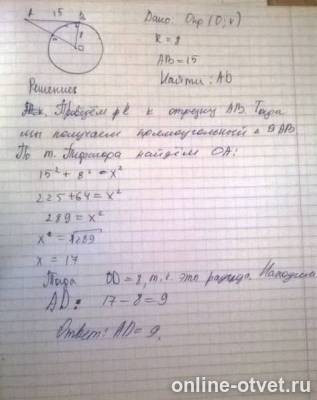 A 15 B
8
O
Дано: Окр (O; r)
R = 8
AB = 15
Найти: AD
Решение
Проведём R к отрезку AB. Тогда
мы получаем прямоугольный Δ OAB.
По т. Пифагора найдём OA:
15² + 8² = x²
225 + 64 = x²
289 = x²
x = √289
x = 17
Тогда OD = 8, т.к. это радиус. Находим
AD: 17 - 8 = 9
Ответ: AD = 9.
online-otvet.ru